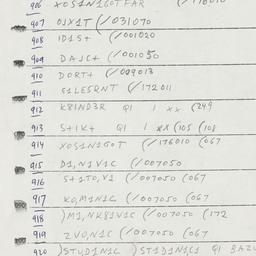 906 XOS1N1GOTFAR (/176010
907 OJX1T (/031070
908 ID1S+ (/001020
909 DAJC+ (/001050
910 DORT+ (/009013
911 S1LESQNT (/172011
912 K8IND3R Q1 1 XX (249
913 S+1K+ Q1 1 XX (105 (108
914 XOS1N1GOT (/176010 (067
915 D1,N1V1C (/007050
916 S+1TO,X1 (/007050 (067
917 KO,M1N1C (/007050 (067
918 )M1,NK81V1C (/007050 (172
919 ZVO,N1C (/007050 (067
920 )STUD1N1C )ST1D1N1C1 Q1